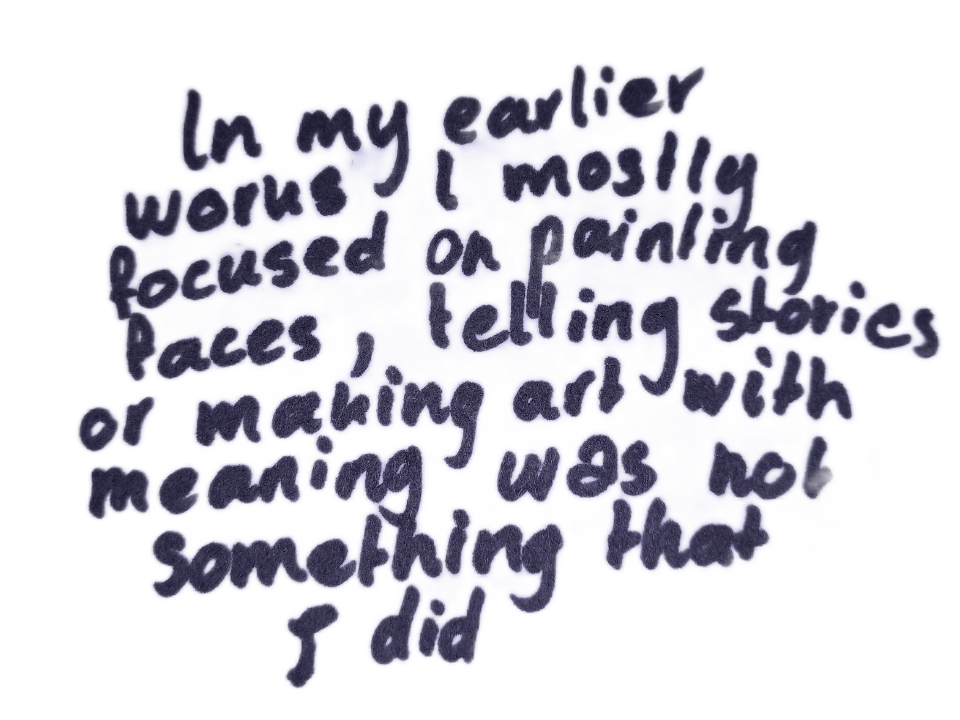 In my earlier
works I mostly
focused on painting
faces, telling stories
or making art with
meaning was not
something that
I did